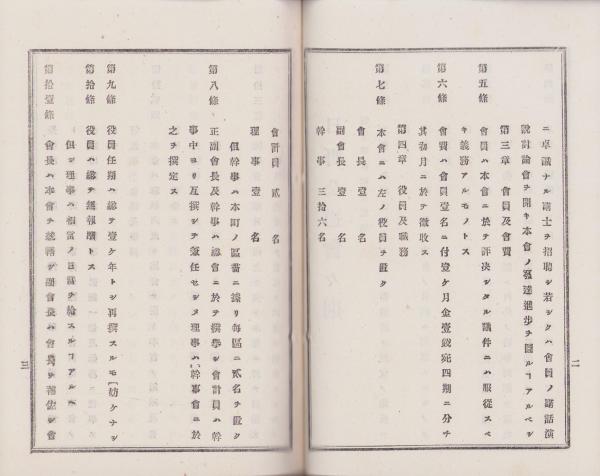 ニ卓識ナル碩士ヲ招聘シ若シクハ會員ノ談話演
說討論會ヲ開キ本會ノ發達進步ヲ圖ルヿアルベシ
第三章 會員及會費
第五條 會員ハ本會ニ於テ評決シタル議件ニハ服從スベ
キ義務アルモノトス
第六條 會費ハ會員壹名ニ付壹ケ月金壹錢宛四期ニ分チ
其初月ニ於テ徵收ス
第四章 役員及職務
第七條 本會ニハ左ノ役員ヲ置ク
會長 壹名
副會長 壹名
幹事 三拾六名
二
會計員 貳名
理事 壹名
但幹事ハ本町ノ區畫ニ據リ每區ニ貳名ヲ置ク
第八條 正副會長及幹事ハ總會ニ於テ撰擧シ會計員ハ幹
事中ヨリ互撰シテ兼任セシメ理事ハ幹事會ニ於
之ヲ撰定ス
第九條 役員任期ハ總テ壹ケ年トシ再撰スルモ妨ケナシ
第拾條 役員ハ總テ無報酬トス
但シ理事ハ相當ノ日當ヲ給スルヿアルベシ
第拾壹條 會長ハ本會ヲ統轄シ副會長ハ會長ヲ補佐シ會
三